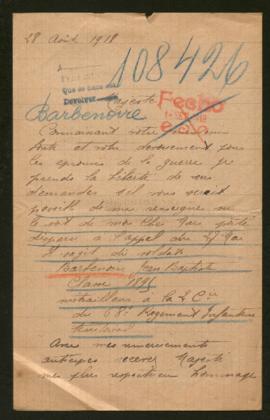 28 Août 1918
108426
Devolver
Majesté
Fecho
Barbenoire
Connaissant votre
et votre dévouement pour
les éprouvés de la guerre je
prends la liberté de vous
demander s'il vous serait
possible de me renseigner sur
le sort de mon cher
disparu à l'appel du 27
Il s'agit du soldat
Barbenoire Jean Baptiste
Classe 1896
mitrailleur à la 2 Cie
du 68e Régiment Infanterie
territorial
Avec mes remerciements
anticipés recevez Majesté
mes plus respectueux hommages